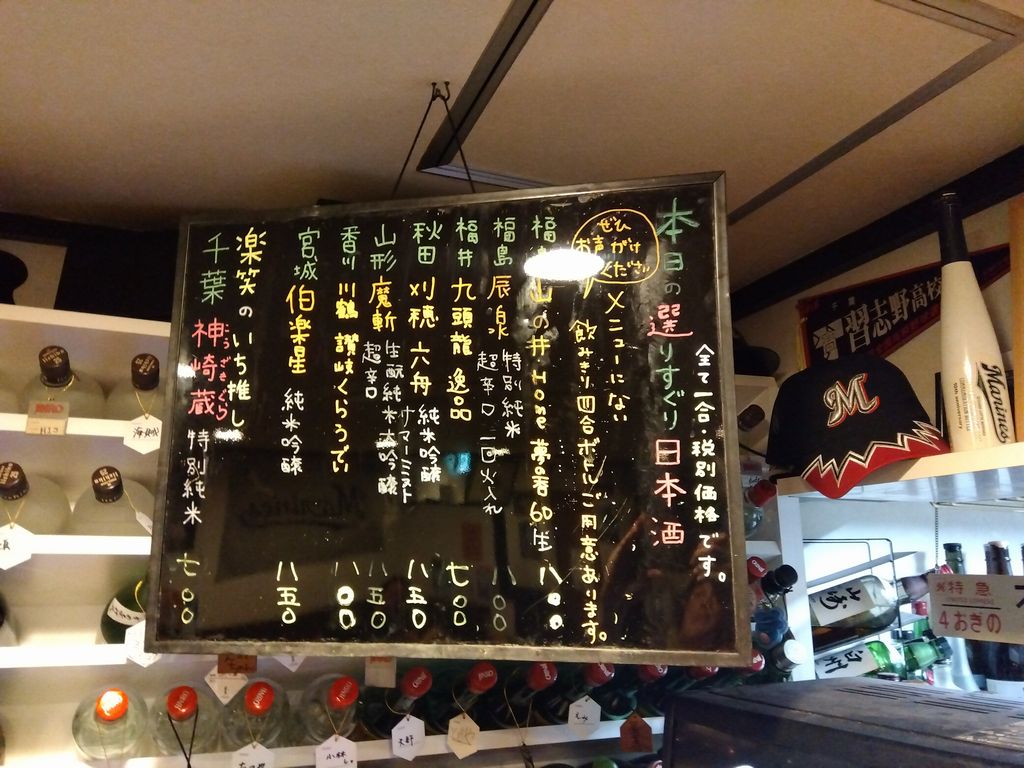 本日の選りすぐり日本酒
全て一合・税別価格です。
ぜひ
お声がけ
ください
メニューにない
飲みきり四合ボトルご用意あります。
福島 山の井 Home 夢の香60生 八〇〇
福島 辰泉 特別純米
超辛口 一回火入れ 八〇〇
福井 九頭龍 逸品 七〇〇
秋田 刈穂 六舟 純米吟醸
サマーミスト 八五〇
山形 魔斬 生酛純米大吟醸
超辛口 八五〇
香川 川鶴 讃岐くらうでぃ 八〇〇
宮城 伯楽星 純米吟醸 八五〇
楽笑のいち推し
千葉 神崎蔵 特別純米 七〇〇
こうざきぐら
習志野高校
M
Marines
山崎
白州
特急
4おきの
JINRO
小林